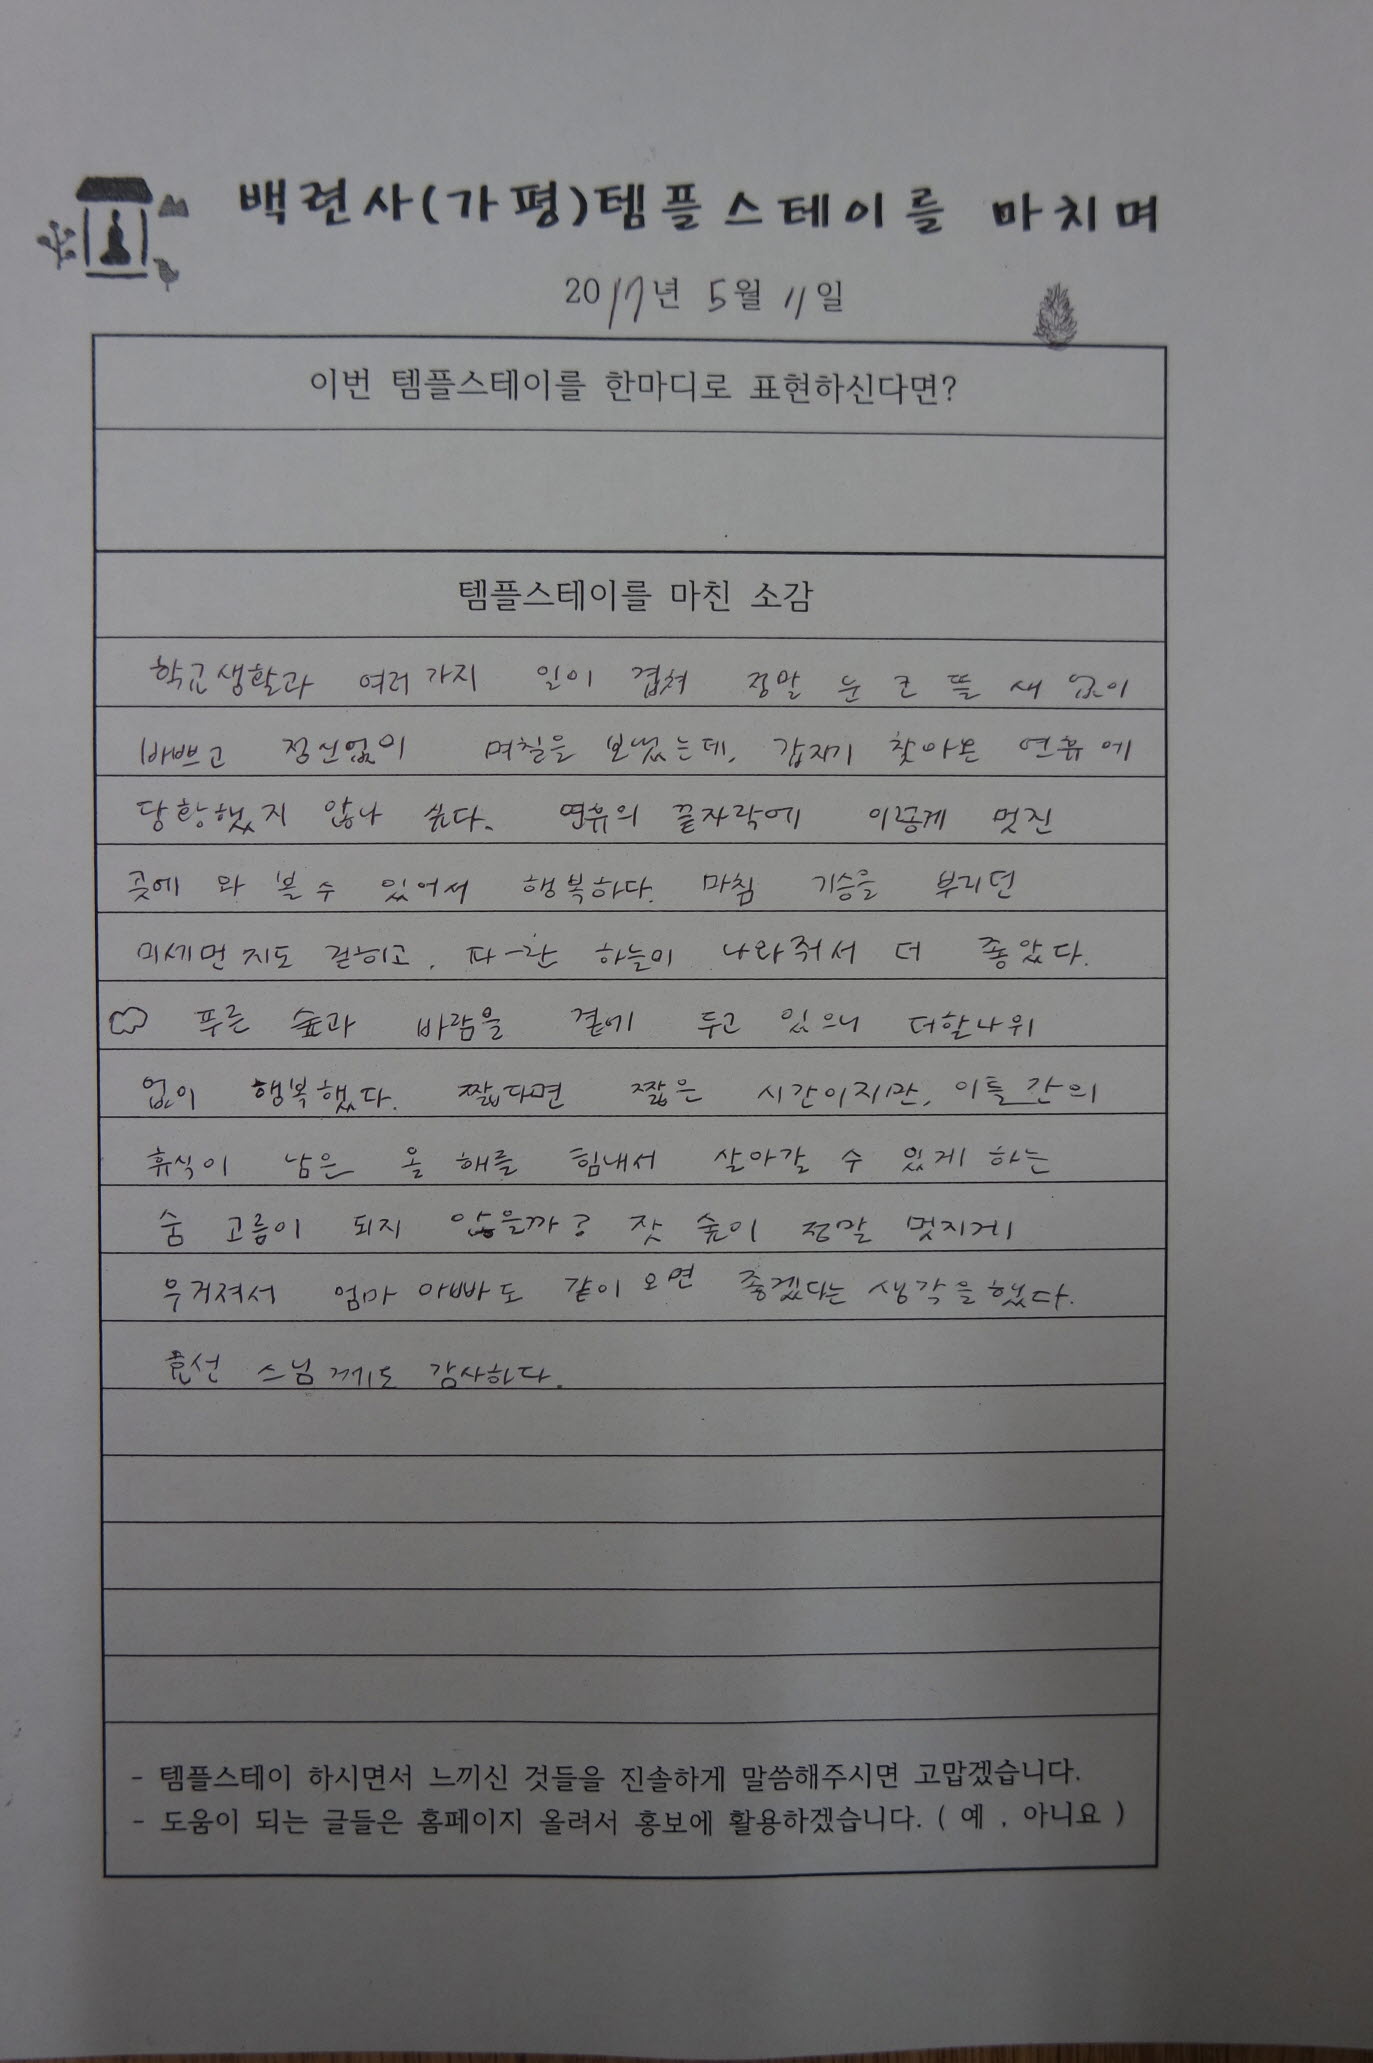 백련사(가평)템플스테이를 마치며
2017년 5월 11일
이번 템플스테이를 한마디로 표현하신다면?
템플스테이를 마친 소감
학교생활과 여러가지 일이 겹쳐 정말 눈 코 뜰 새 없이
바쁘고 정신없이 며칠을 보냈는데, 갑자기 찾아온 연휴에
당황했지 않나 싶다. 연휴의 끝자락에 이렇게 멋진
곳에 와 볼 수 있어서 행복하다. 마침 기승을 부리던
미세먼지도 걷히고, 파-란 하늘이 나와줘서 더 좋았다.
푸른 숲과 바람을 곁에 두고 있으니 더할나위
없이 행복했다. 짧다면 짧은 시간이지만, 이틀 간의
휴식이 남은 올 해를 힘내서 살아갈 수 있게 하는
숨 고름이 되지 않을까? 잣 숲이 정말 멋지게
우거져서 엄마 아빠도 같이 오면 좋겠다는 생각을 했다.
효선 스님께도 감사하다.
- 템플스테이 하시면서 느끼신 것들을 진솔하게 말씀해주시면 고맙겠습니다.
- 도움이 되는 글들은 홈페이지 올려서 홍보에 활용하겠습니다. ( 예 , 아니요 )